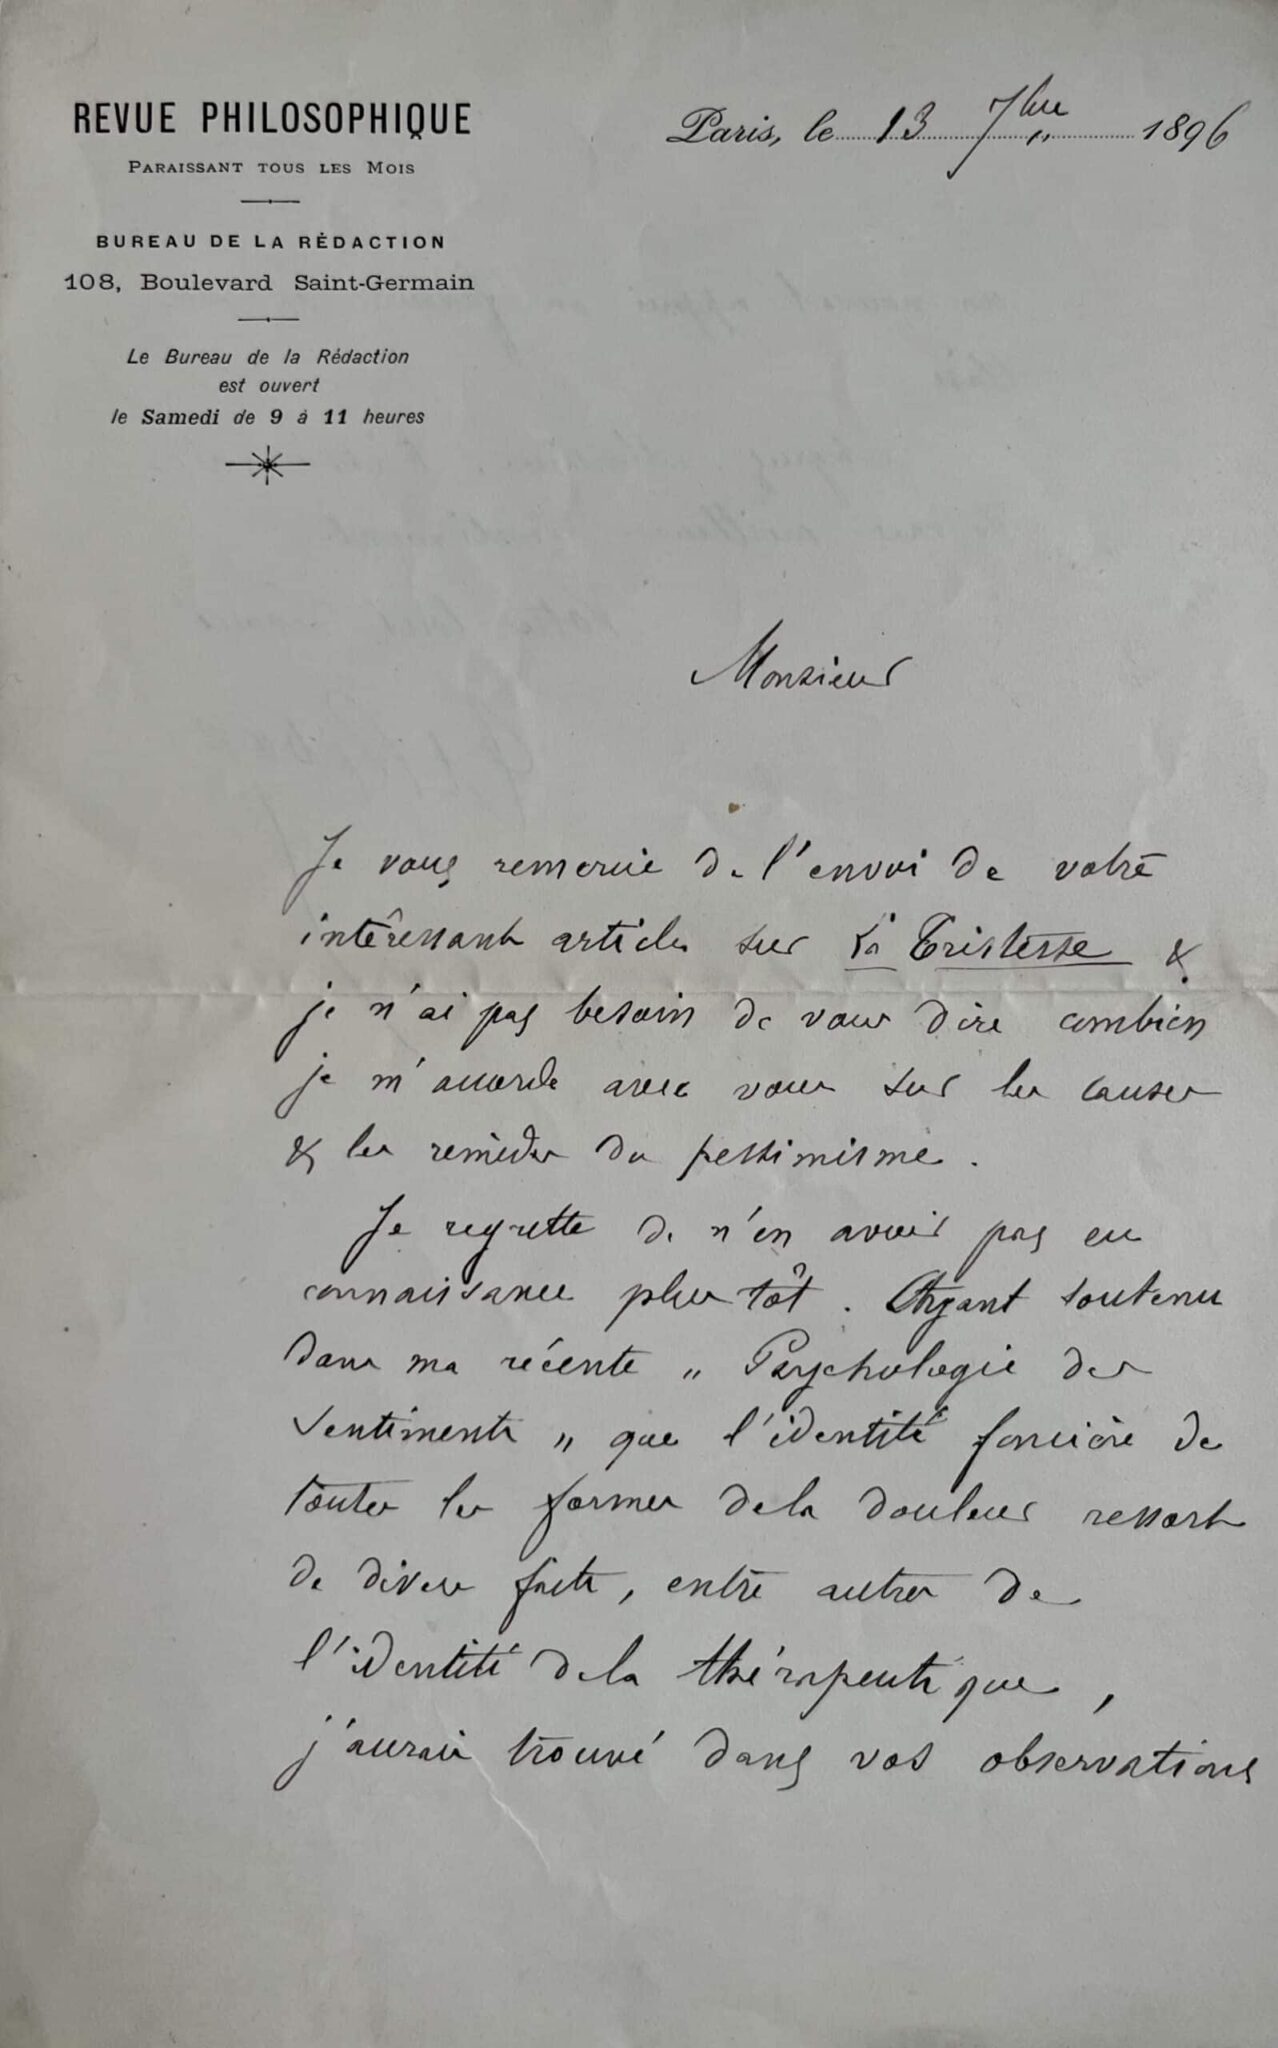 REVUE PHILOSOPHIQUE
PARAISSANT TOUS LES MOIS
BUREAU DE LA RÉDACTION
108, Boulevard Saint-Germain
Le Bureau de la Rédaction
est ouvert
le Samedi de 9 à 11 heures
Paris, le 13 7bre 1896
Monsieur
Je vous remercie de l'envoi de votre
intéressant article sur La Tristesse &
je n'ai pas besoin de vous dire combien
je m'accorde avec vous sur les causes
& les remèdes du pessimisme.
Je regrette de n'en avoir pas eu
connaissance plus tôt. Ayant soutenu
dans ma récente „ Psychologie des
Sentiments „ que l'identité foncière de
toutes les formes de la douleur ressort
de divers faits, entre autres de
l'identité de la thérapeutique,
j'aurais trouvé dans vos observations